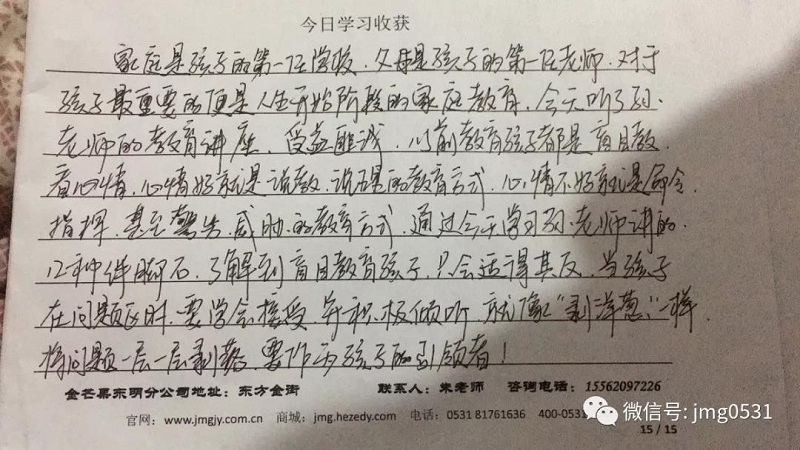 今日学习收获
家庭是孩子的第一任学校，父母是孩子的第一任老师，对于
孩子最重要的便是人生开始阶段的家庭教育，今天听了孙
老师的教育讲座，受益匪浅，以前教育孩子都是盲目教，
看心情，心情好就是说教，说理的教育方式，心情不好就是命令
指挥，甚至警告，威胁的教育方式，通过今天学习孙老师讲的
12种绊脚石，了解到盲目教育孩子，只会适得其反，当孩子
在问题区时，要学会接受，并积极倾听，就像“剥洋葱”一样，
将问题一层一层剥落，要作为孩子的引领者！
金芒果东明分公司地址：东方金街 联系人：朱老师 咨询电话：15562097226
官网：www.jmgjy.com.cn 商城：jmg.hezedy.com 电话：0531 81761636 400-0531
微信号: jmg0531
15 / 15